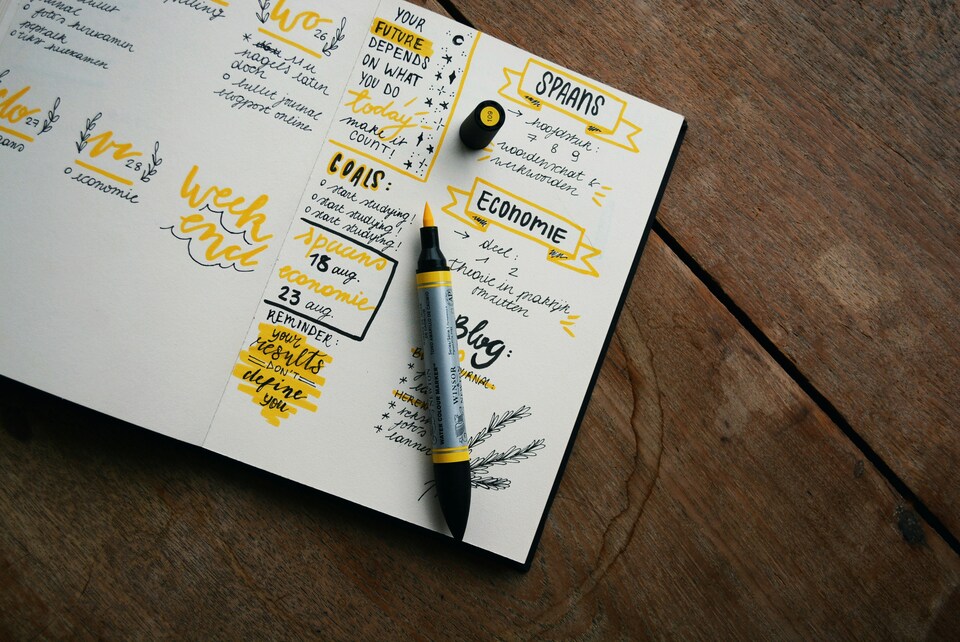 journal
o foto's herwerken
opmaak
o tekst herwerken
wo 26
* nagels laten
doch
o bullet journal
blogpost online
do 27
vr 28
o economie
week
end
YOUR
FUTURE
DEPENDS
ON WHAT
YOU DO
today
make it
COUNT!
GOALS:
o start studying!
o start studying!
o start studying!
spaans
18 aug.
economie
23 aug.
REMINDER:
your
results
DON'T
define
you
SPAANS
→ hoofdstuk:
7 8 9
woordenschat &
werkwoorden
ECONOMIE
→ deel:
1 2
theorie in praktijk
omzetten
Blog:
*
*
*
* foto's
* banner
109
WINSOR
WATER COLOUR MARKER